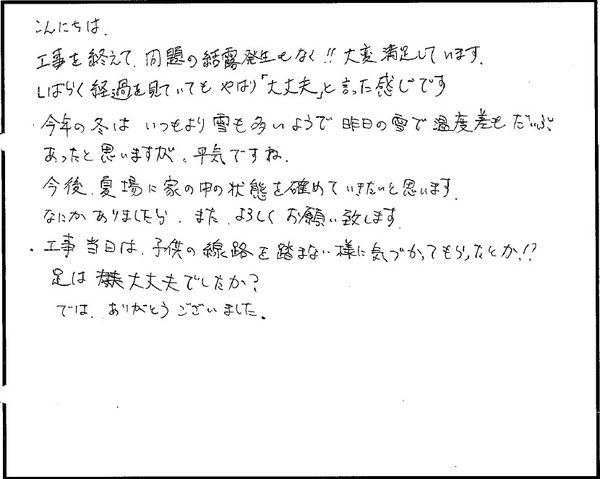 こんにちは.
工事を終えて、問題の結露発生もなく!! 大変満足しています.
しばらく経過を見ていてもやはり「大丈夫」と言った感じです
・今年の冬は いつもより雪も多いようで昨日の雪で温度差もだいぶ
あったと思いますが、平気ですね.
今後、夏場に家の中の状態を確めていきたいと思います.
なにかありましたら、また、よろしくお願い致します.
・工事当日は、子供の線路を踏まない様に気づかってもらったとか!?
足は 大丈夫でしたか?
では、ありがとうございました。